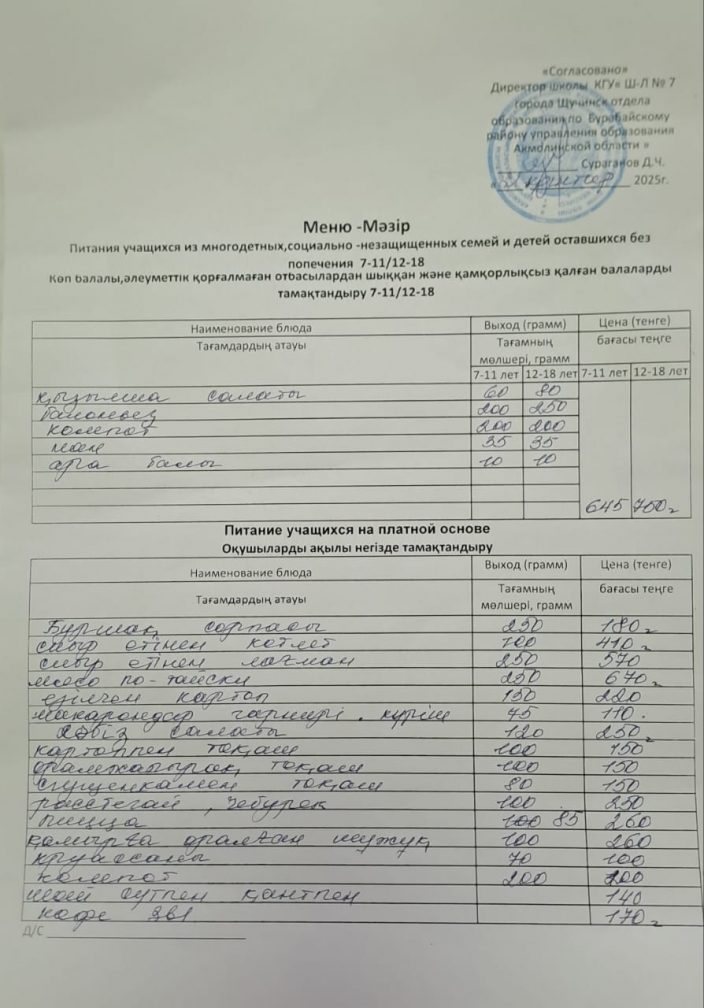 «Согласовано»
Директор школы КГУ« Ш-Л № 7
города Щучинск отдела
образования по Бурабайскому
району управления образования
Акмолинской области »
Сураганов Д.Ч.
« 2025г.
Меню -Мәзір
Питания учащихся из многодетных,социально -незащищенных семей и детей оставшихся без
попечения 7-11/12-18
Көп балалы,әлеуметтік қорғалмаған отбасылардан шыққан және қамқорлықсыз қалған балаларды
тамақтандыру 7-11/12-18
Наименование блюда Выход (грамм) Цена (тенге)
Тағамдардың атауы Тағамның мөлшері, грамм бағасы теңге
7-11 лет 12-18 лет 7-11 лет 12-18 лет
қызылша салаты 60 80
200 250
компот 200 200
нан 35 35
ара балы 10 10
645 760
Питание учащихся на платной основе
Оқушыларды ақылы негізде тамақтандыру
Наименование блюда Выход (грамм) Цена (тенге)
Тағамдардың атауы Тағамның мөлшері, грамм бағасы теңге
Бұршақ сорпасы 250 180
сиыр етінен котлет 100 410
сиыр етінен лағман 250 570
мясо по-тайски 250 670
езілген картоп 150 220
макарондар гарнирі. күріш 45 110
сәбіз салаты 120 250
картоппен тоқаш 100 150
тоқаш 100 150
сгущенкамен тоқаш 80 150
расстегай, чебурек 100 250
пицца 100 85 260
қамырға оралған шұжық 100 260
круассаны 70 100
компот 200 200
шай сүтпен қантпен 140
кофе 3в1 170
Д/С